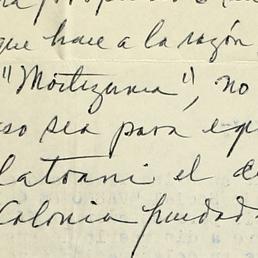 que hace a la razón
"Moctezuma", no
eso sea para equ
latoani el de
Colonia fundada